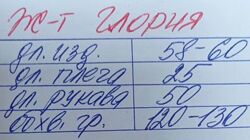 Ж-т Глория
дл. изд. 58-60
дл. плеча 25
дл. рукава 50
обхв. гр. 120-130